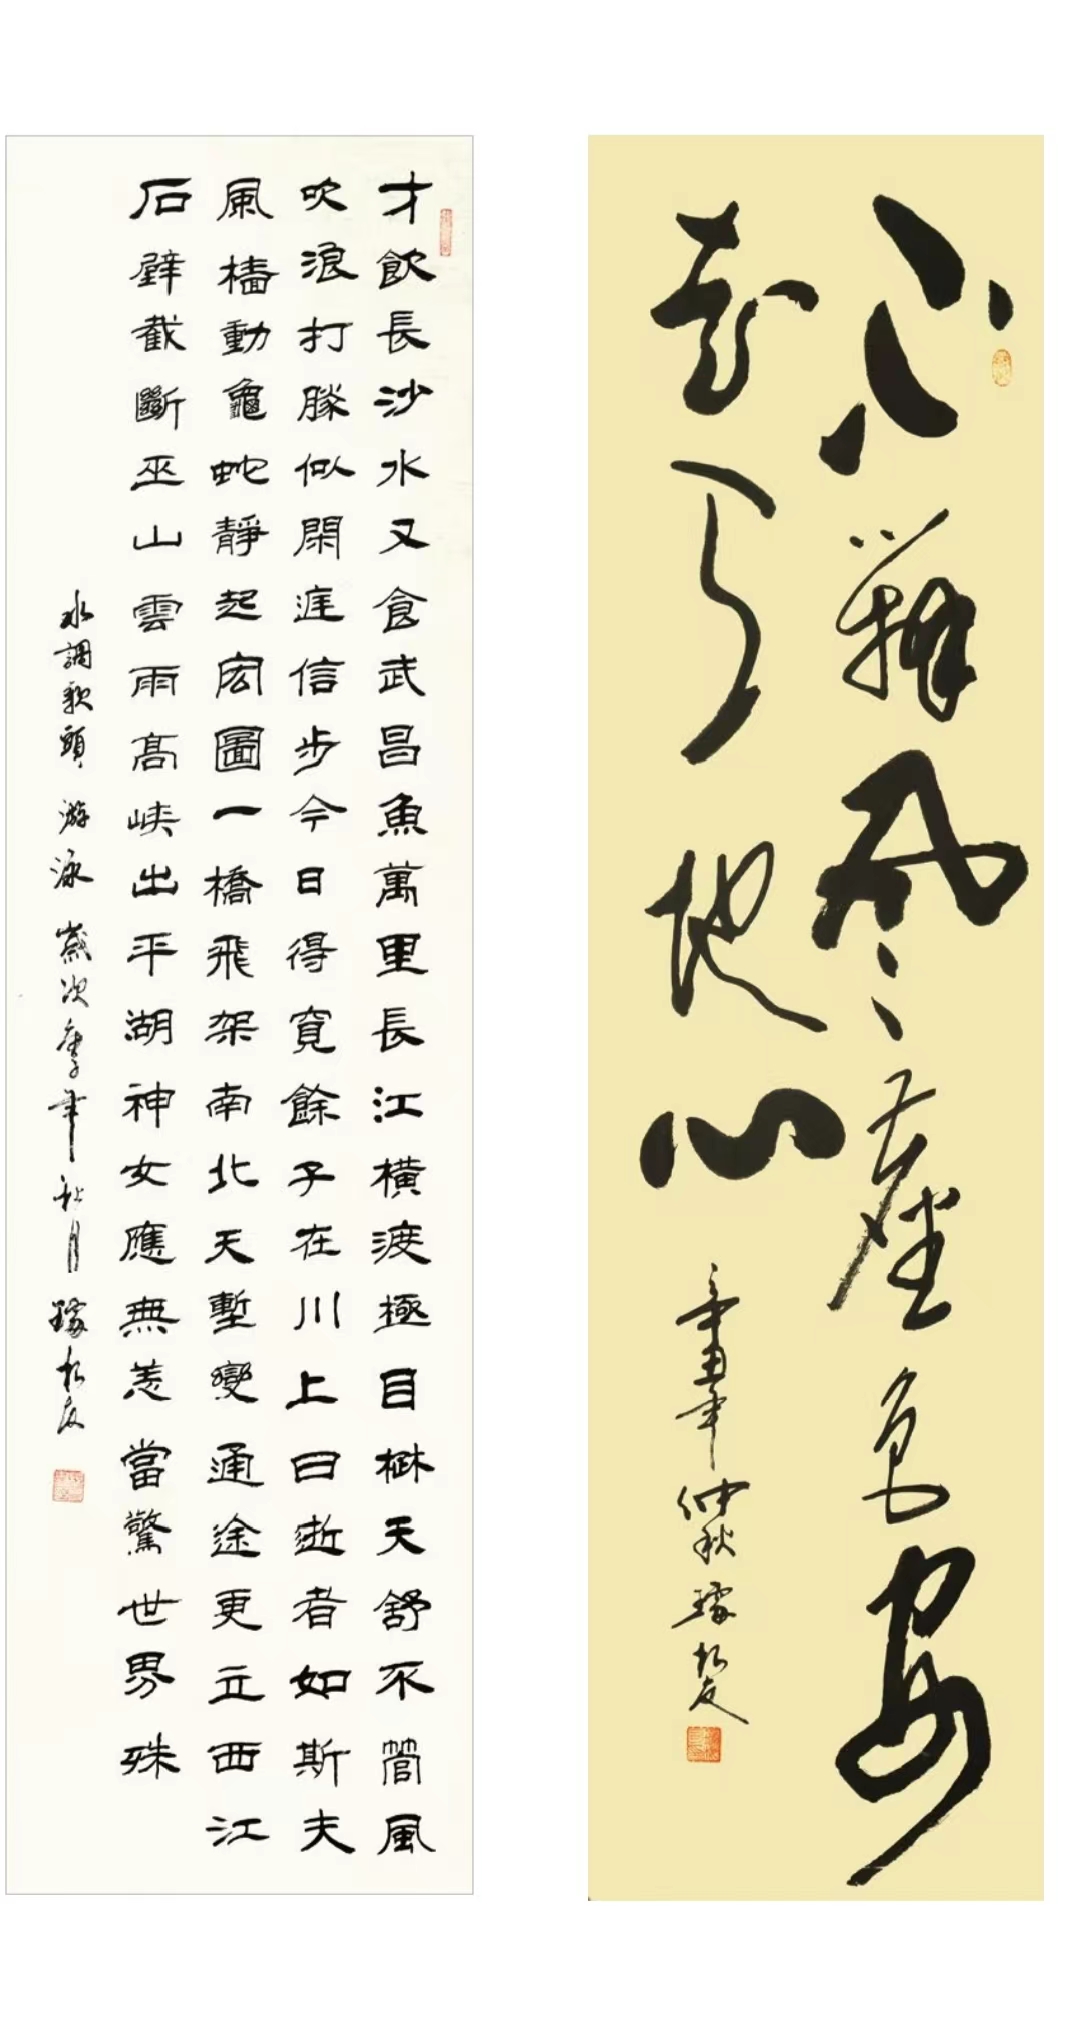 才飲長沙水又食武昌魚萬里長江橫渡極目楚天舒不管風
吹浪打勝似閑庭信步今日得寬餘子在川上曰逝者如斯夫
風檣動龜蛇靜起宏圖一橋飛架南北天塹變通途更立西江
石壁截斷巫山雲雨高峽出平湖神女應無恙當驚世界殊
水調歌頭 游泳 歲次庚子年秋月 璩松友
風塵色
地心
辛丑年仲秋 璩松友